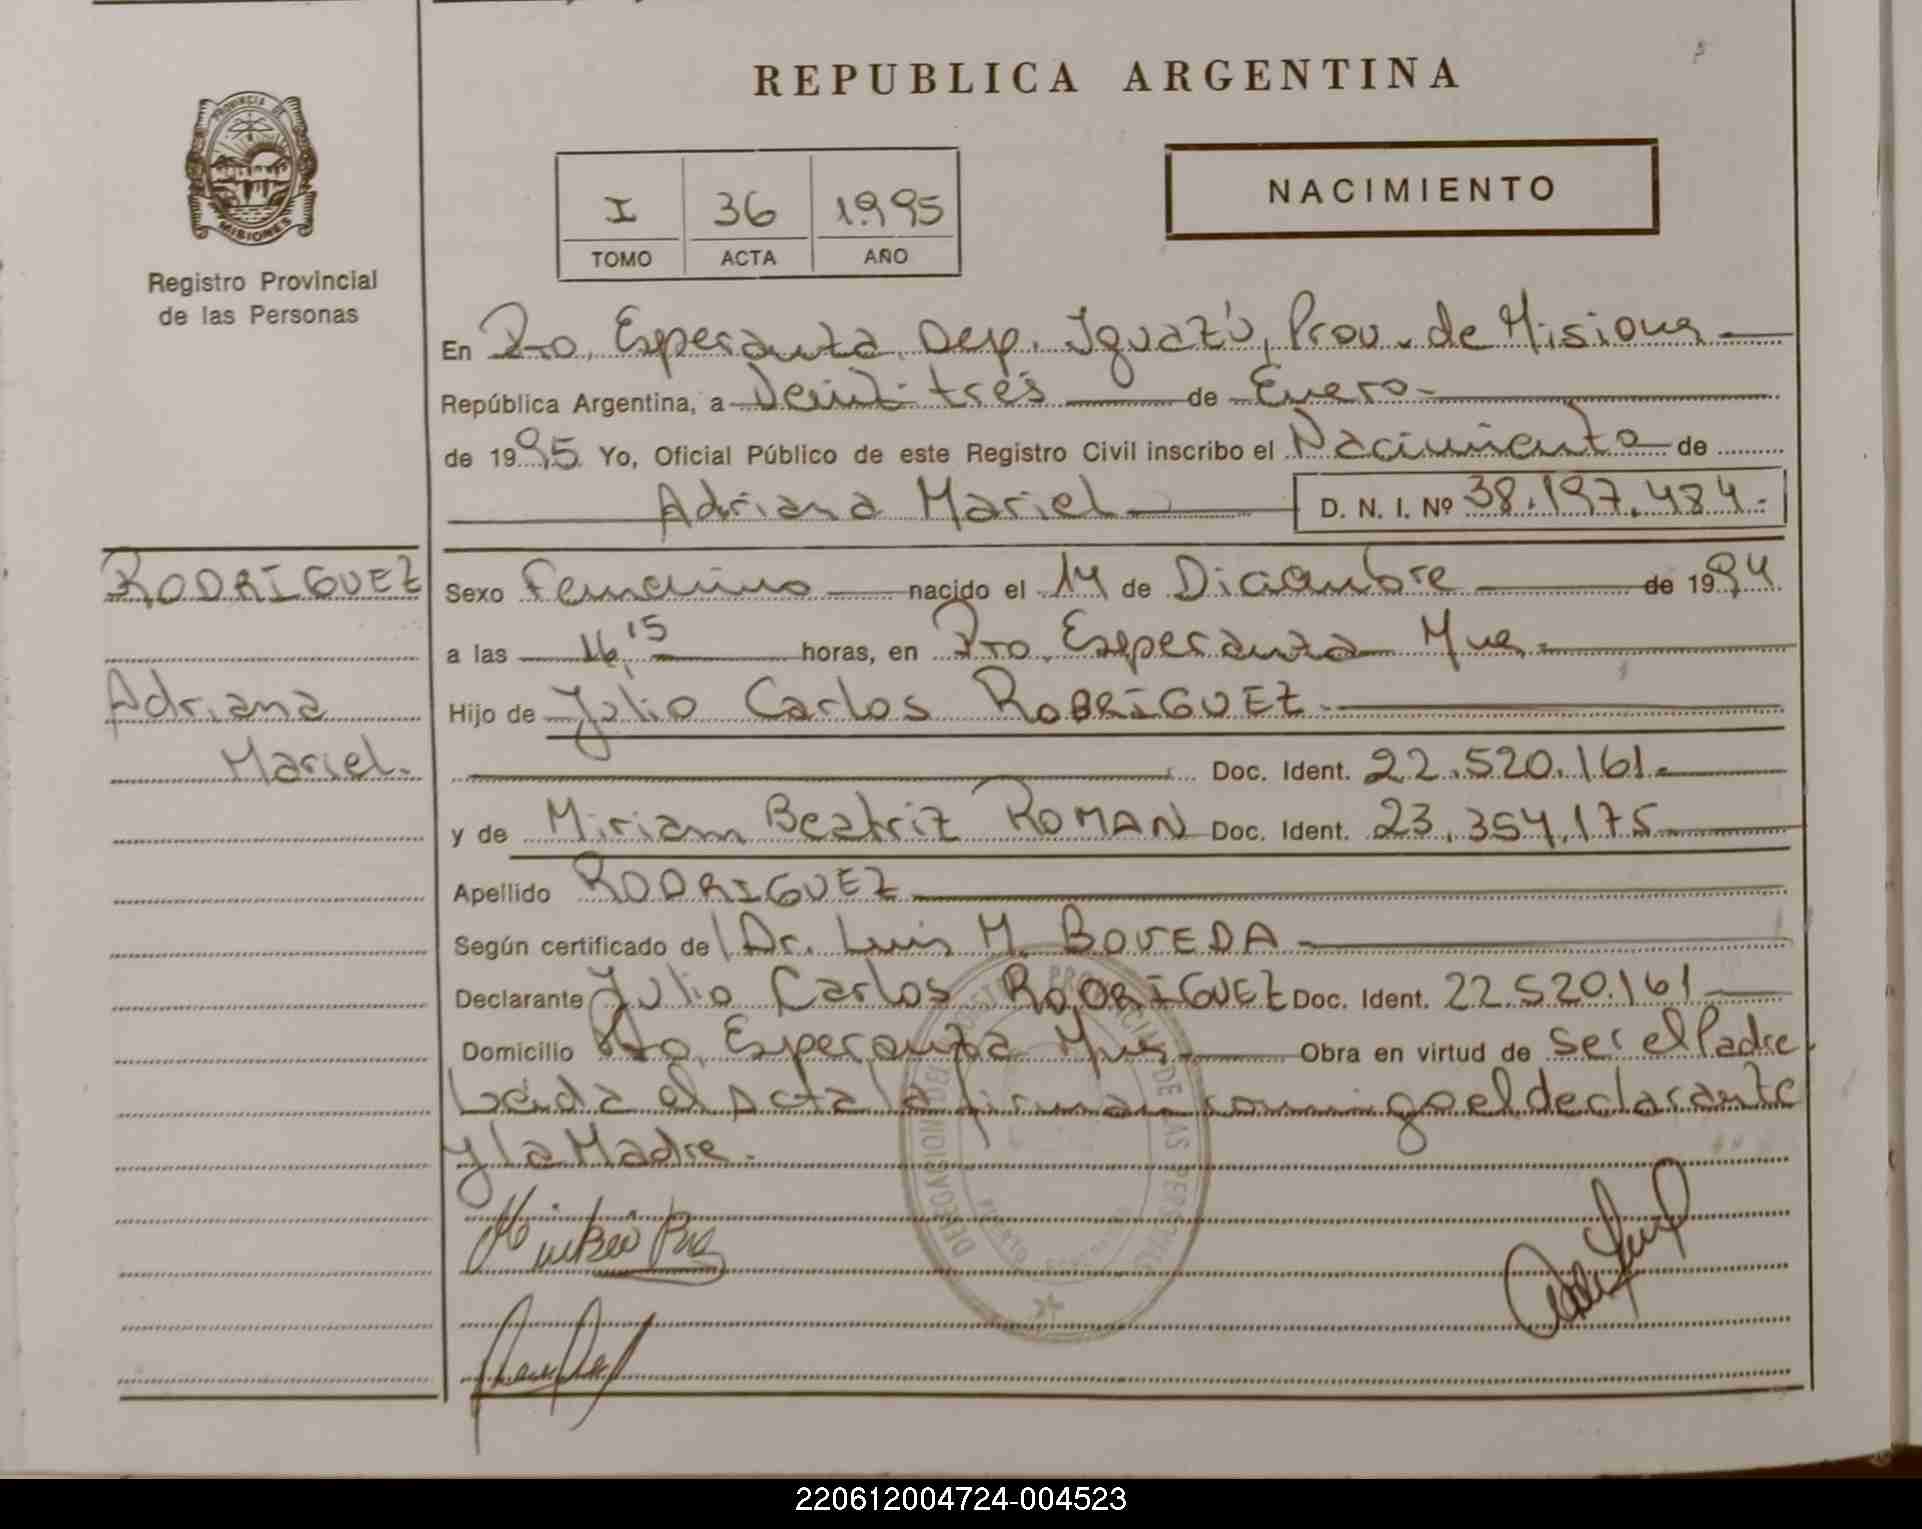 REPUBLICA ARGENTINA
PROVINCIA DE
MISIONES
Registro Provincial
de las Personas
NACIMIENTO
I 36 1995
TOMO ACTA AÑO
En Pto. Esperanza, Dep. Iguazú, Prov. de Misiones
República Argentina, a Veintitrés de Enero
de 1995 Yo, Oficial Público de este Registro Civil inscribo el Nacimiento de
Adriana Mariel D. N. I. Nº 38.197.484.-
RODRIGUEZ
Adriana
Mariel.
Sexo Femenino nacido el 14 de Diciembre de 1994
a las 16,15 horas, en Pto. Esperanza Mnes.
Hijo de Julio Carlos RODRIGUEZ
Doc. Ident. 22.520.161.
y de Miriam Beatriz ROMAN Doc. Ident. 23.354.175
Apellido RODRIGUEZ
Según certificado de Dr. Luis M. BOVEDA
Declarante Julio Carlos RODRIGUEZ Doc. Ident. 22.520.161
Domicilio Pto. Esperanza Mnes. Obra en virtud de ser el Padre.
Leida el Acta la firman conmigo el declarante
y la Madre.
220612004724-004523